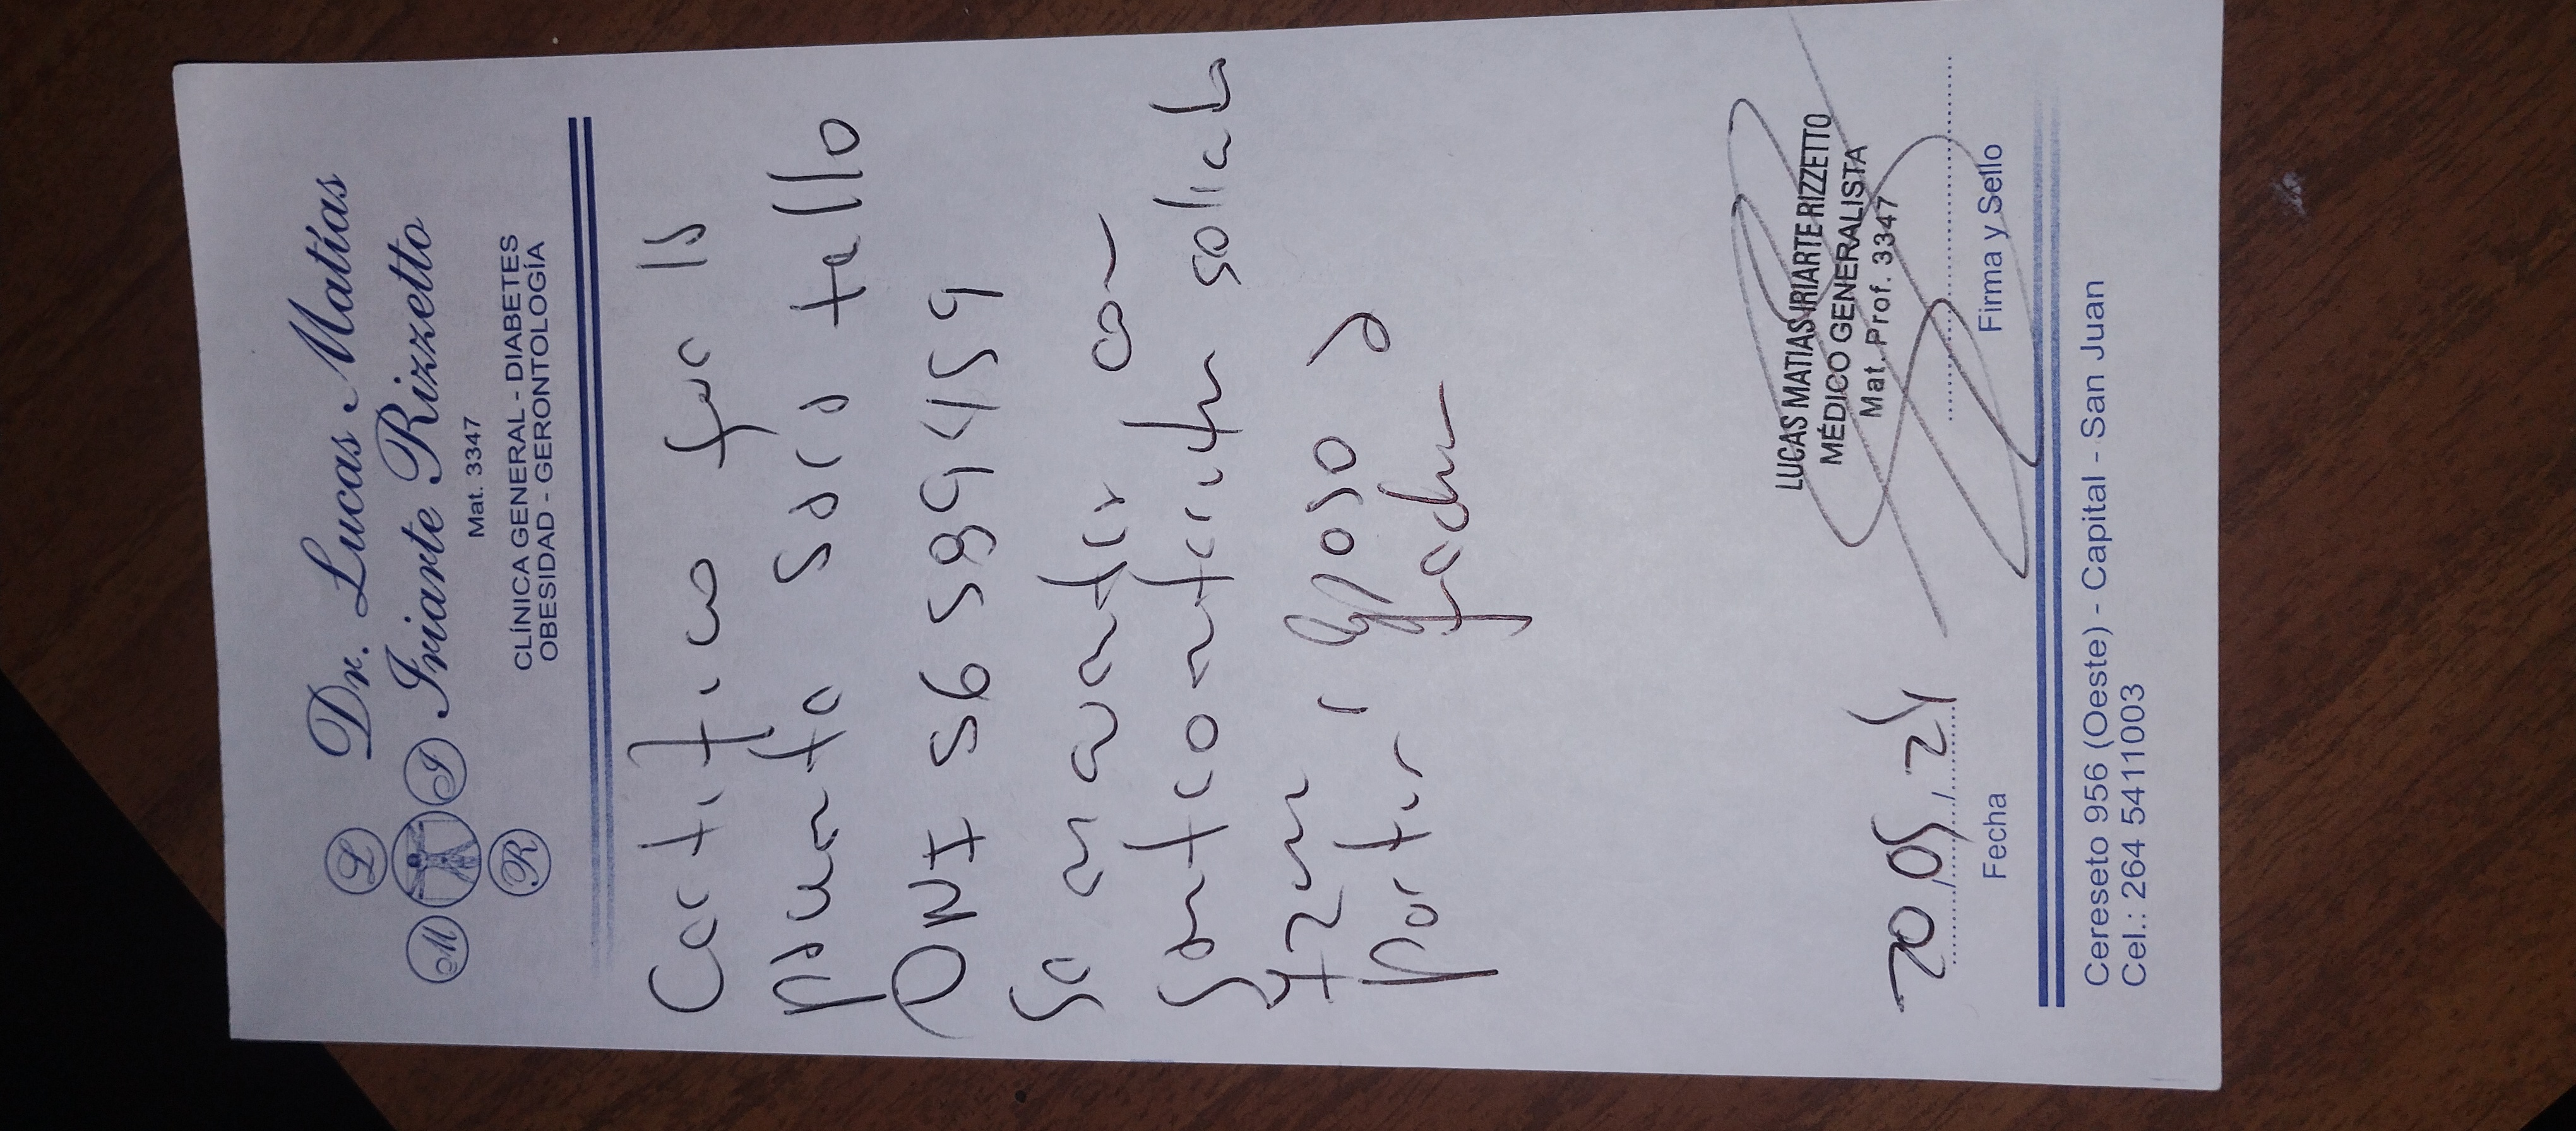 Dr. Lucas Matías
Iriarte Rizzetto
L
M
I
R
Mat. 3347
CLÍNICA GENERAL - DIABETES
OBESIDAD - GERONTOLOGÍA
Certifico que la
paciente Sara tello
DNI 56589459
Se encuentra con
Gastroenteritis solicito
72 hs reposo a
partir fecha
LUCAS MATIAS IRIARTE RIZZETTO
MÉDICO GENERALISTA
Mat. Prof. 3347
20/05/24
Fecha
Firma y Sello
Cereseto 956 (Oeste) - Capital - San Juan
Cel.: 264 5411003